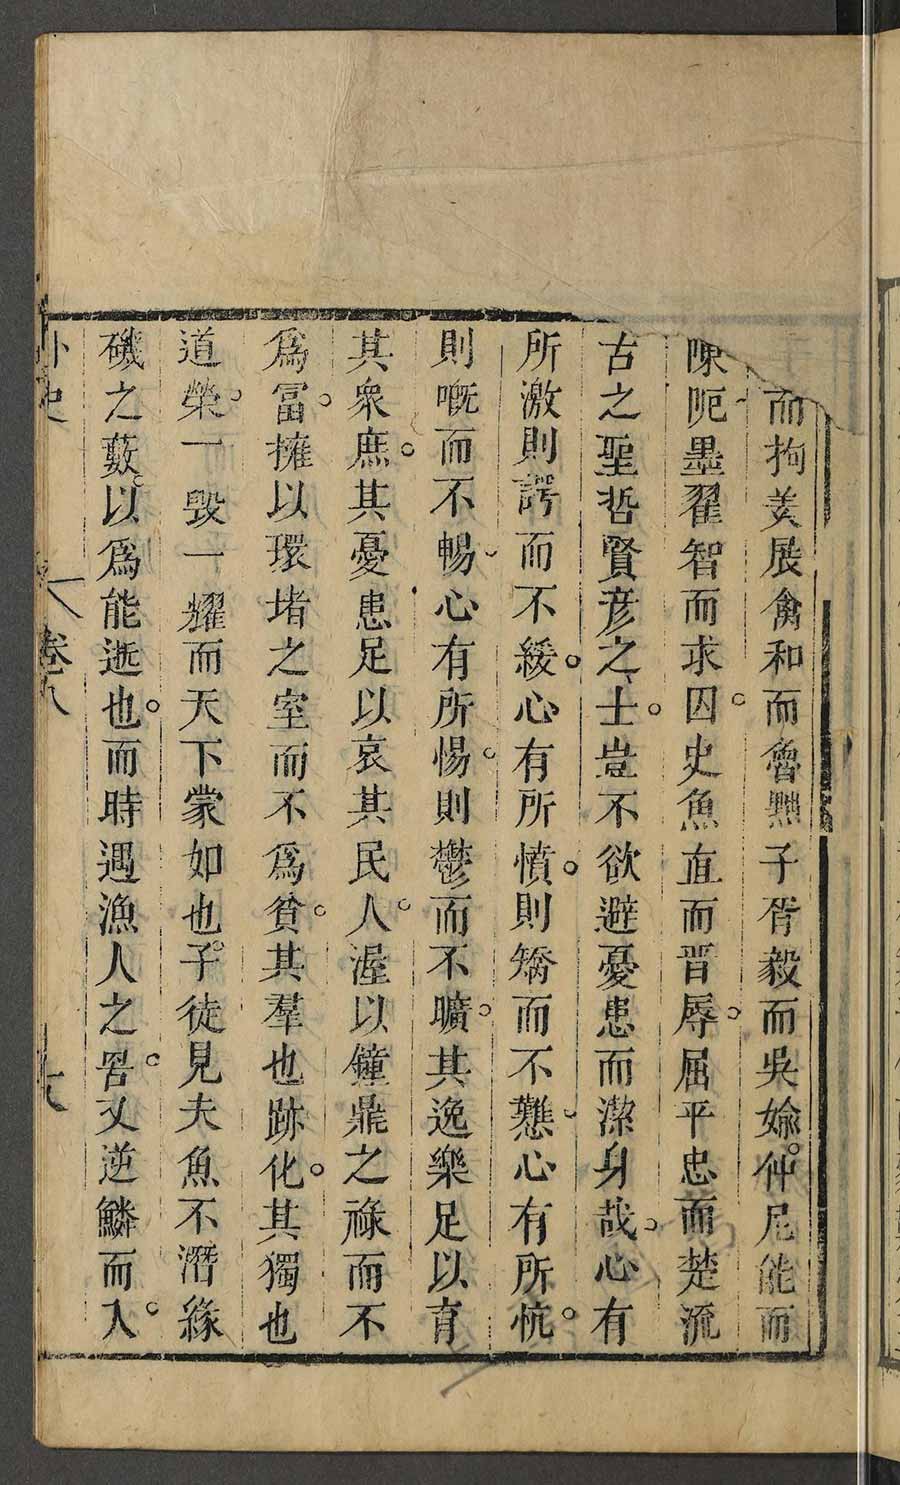 而拘羑展禽和而魯黜子胥毅而吳媮仲尼能而
陳阨墨翟智而求囚史魚直而晋辱屈平忠而楚流
古之聖哲賢彥之士豈不欲避憂患而潔身哉心有
所激則諤而不緩心有所憤則矯而不戁心有所忼
則嘅而不暢心有所惕則鬱而不曠其逸樂足以育
其衆庶其憂患足以哀其民人渥以鐘鼎之祿而不
爲冨擁以環堵之室而不爲貧其羣也跡化其獨也
道榮一毀一耀而天下蒙如也子徒見夫魚不潛緣
磯之藪以爲能逝也而時遇漁人之罟又逆鱗而入
外史 卷八